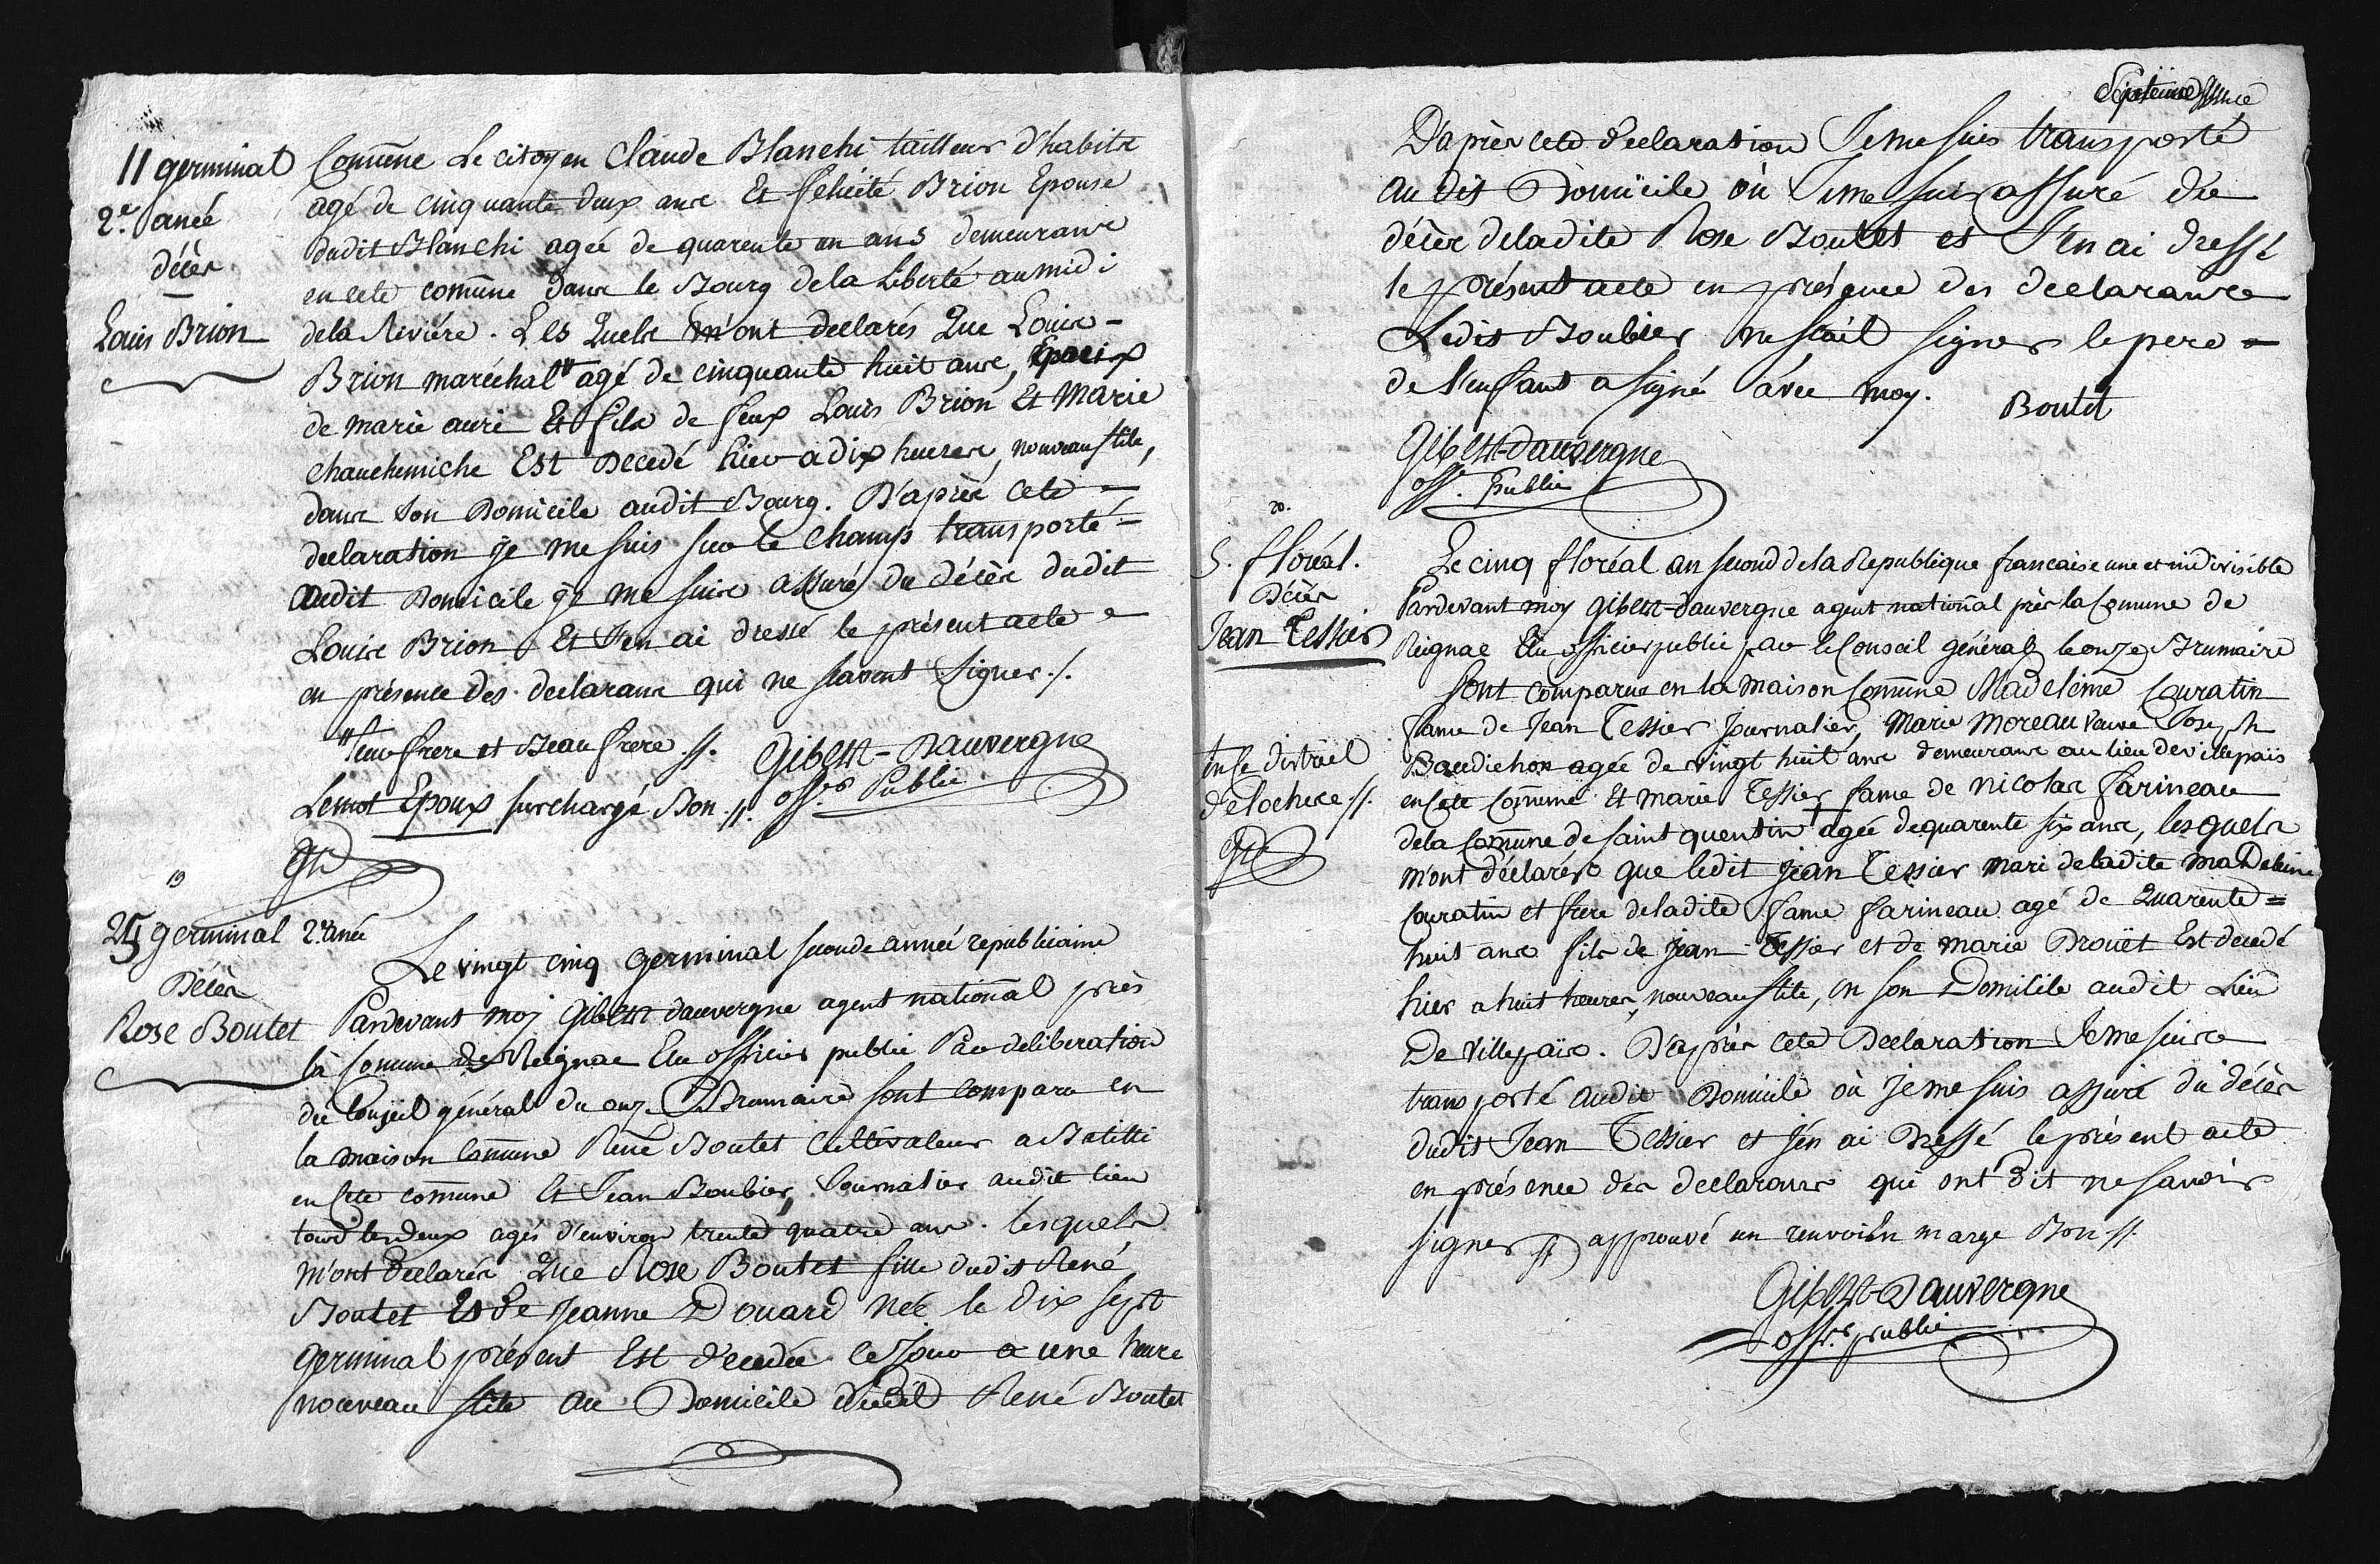 11 germinal
2.e anée
décès
Louis Brion
Comune Le citoyen Claude Blanchi tailleur d'habits
agé de cinquante deux ans Et felicité Brion Epouse
dudit Blanchi agée de quarente un ans demeurans
en cete comune dans le Bourg de la Liberté au midi
de la Riviére. Les Quels m'ont declarés Que Louis -
Brion maréchal agé de cinquante huit ans, Epoux
de marie auri Et fils de feux Louis Brion Et Marie
chauchemiche Est Decedé hier a dix heures, nouveau stile,
dans son Domicile audit Bourg. D'après cete -
declaration je me suis sur le champs transporté -
audit Domicile je me suis assuré du décès dudit
Louis Brion Et J'en ai dressé le présent acte
en présence des declarans qui ne savent signer ./.
leur frere et Beau frere .//. Gibert-Dauvergne
Le mot Epoux surchargé Bon .//. off.er Public
GD
19
25 germinal 2.e anée
Décès
Rose Boutet
Le vingt cinq Germinal seconde année republicaine
Pardevant moy Gibert dauvergne agent national près
la Comune de Reignac Elu officier public Par deliberation
du Conseil général du onze Brumaire sont comparu en
la maison Comune René Boutet Cultivateur a Batilli
en cete comune Et Jean Boubier, Journalier audit lieu
tous les deux agés d'environ trente quatre ans. lesquels
m'ont declarés Que Rose Boutet fille dudit René
Boutet Et de Jeanne Douard née le dix sept
Germinal présent Est décedée ce Jour a une heure
nouveau stile au Domicile dudit René Boutet
Septieme
D'après cete declaration Je me suis transporté
au dit Domicile où Je me suis assuré du
décès de ladite Rose Boutet et J'en ai dressé
le présent acte en présence des declarans
Ledit Boubier ne scait signer le pere -
de l'enfant a signé avec moy. Boutet
Gibert-Dauvergne
off. Public
20.
5. floréal.
Décès
Jean Tessier
Le cinq floréal an second de la Republique francaise une et indivisible
Pardevant moy Gibert-dauvergne agent national près la Comune de
Reignac Elu officier public par le Conseil général le onze Brumaire
sont comparus en la maison Comune Madeleine Couratin
fame de Jean Tessier Journalier, Marie Moreau veuve Joseph
Baudichon agée de vingt huit ans demeurans au lieu de villepaïs
en cete Comune Et marie Tessier fame de Nicolas Farineau
de la Comune de saint quentin + agée de quarente six ans, lesquels
+ en ce district
de Loches .//.
GD
m'ont déclarés que ledit Jean Tessier mari de ladite Madeleine
Couratin et frere de ladite fame Farineau agé de Quarente =
huit ans fils de Jean Tessier et de marie Drouët Est decedé
hier a huit heures, nouveau stile, en son Domicile audit Lieu
De Villepaïs. D'après cete Declaration Je me suis
transporté audit Domicile où Je me suis assuré du décès
dudit Jean Tessier et J'en ai Dressé le présent acte
en présence des declarans qui ont dit ne savoir
signer // approuvé un renvoi En marge Bon .//.
Gibert-Dauvergne
off.er public